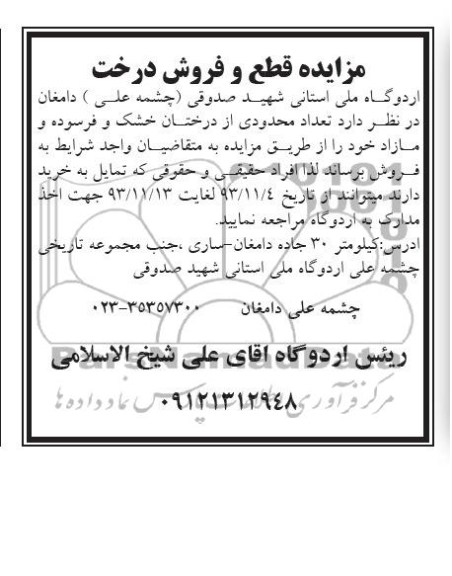 مزایده قطع و فروش درخت
اردوگاه ملی استانی شهید صدوقی (چشمه علی ) دامغان
در نظر دارد تعداد محدودی از درختان خشک و فرسوده و
مازاد خود را از طریق مزایده به متقاضیان واجد شرایط به
فروش برساند لذا افراد حقیقی و حقوقی که تمایل به خرید
دارند میتوانند از تاریخ ۹۳/۱۱/٤ لغایت ۹۳/۱۱/۱۳ جهت اخذ
مدارک به اردوگاه مراجعه نمایید.
ادرس:کیلومتر ۳۰ جاده دامغان-ساری ،جنب مجموعه تاریخی
چشمه علی اردوگاه ملی استانی شهید صدوقی
چشمه علی دامغان ۰۲۳-۳۵۳۵۷۳۰۰
رئیس اردوگاه اقای علی شیخ الاسلامی
۰۹۱۲۱۳۱۲۹٤۸